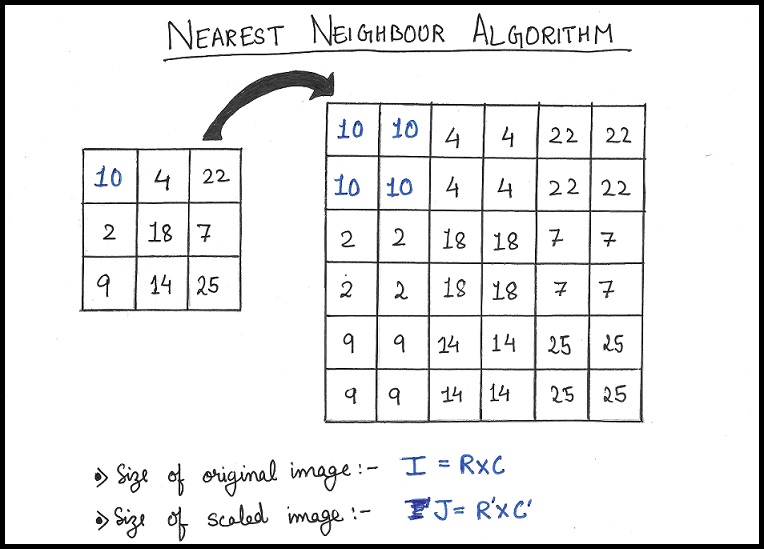 NEAREST NEIGHBOUR ALGORITHM
10 4 22
2 18 7
9 14 25
10 10 4 4 22 22
10 10 4 4 22 22
2 2 18 18 7 7
2 2 18 18 7 7
9 9 14 14 25 25
9 9 14 14 25 25
Size of original image :- I = RXC
Size of scaled image :- J = R'XC'